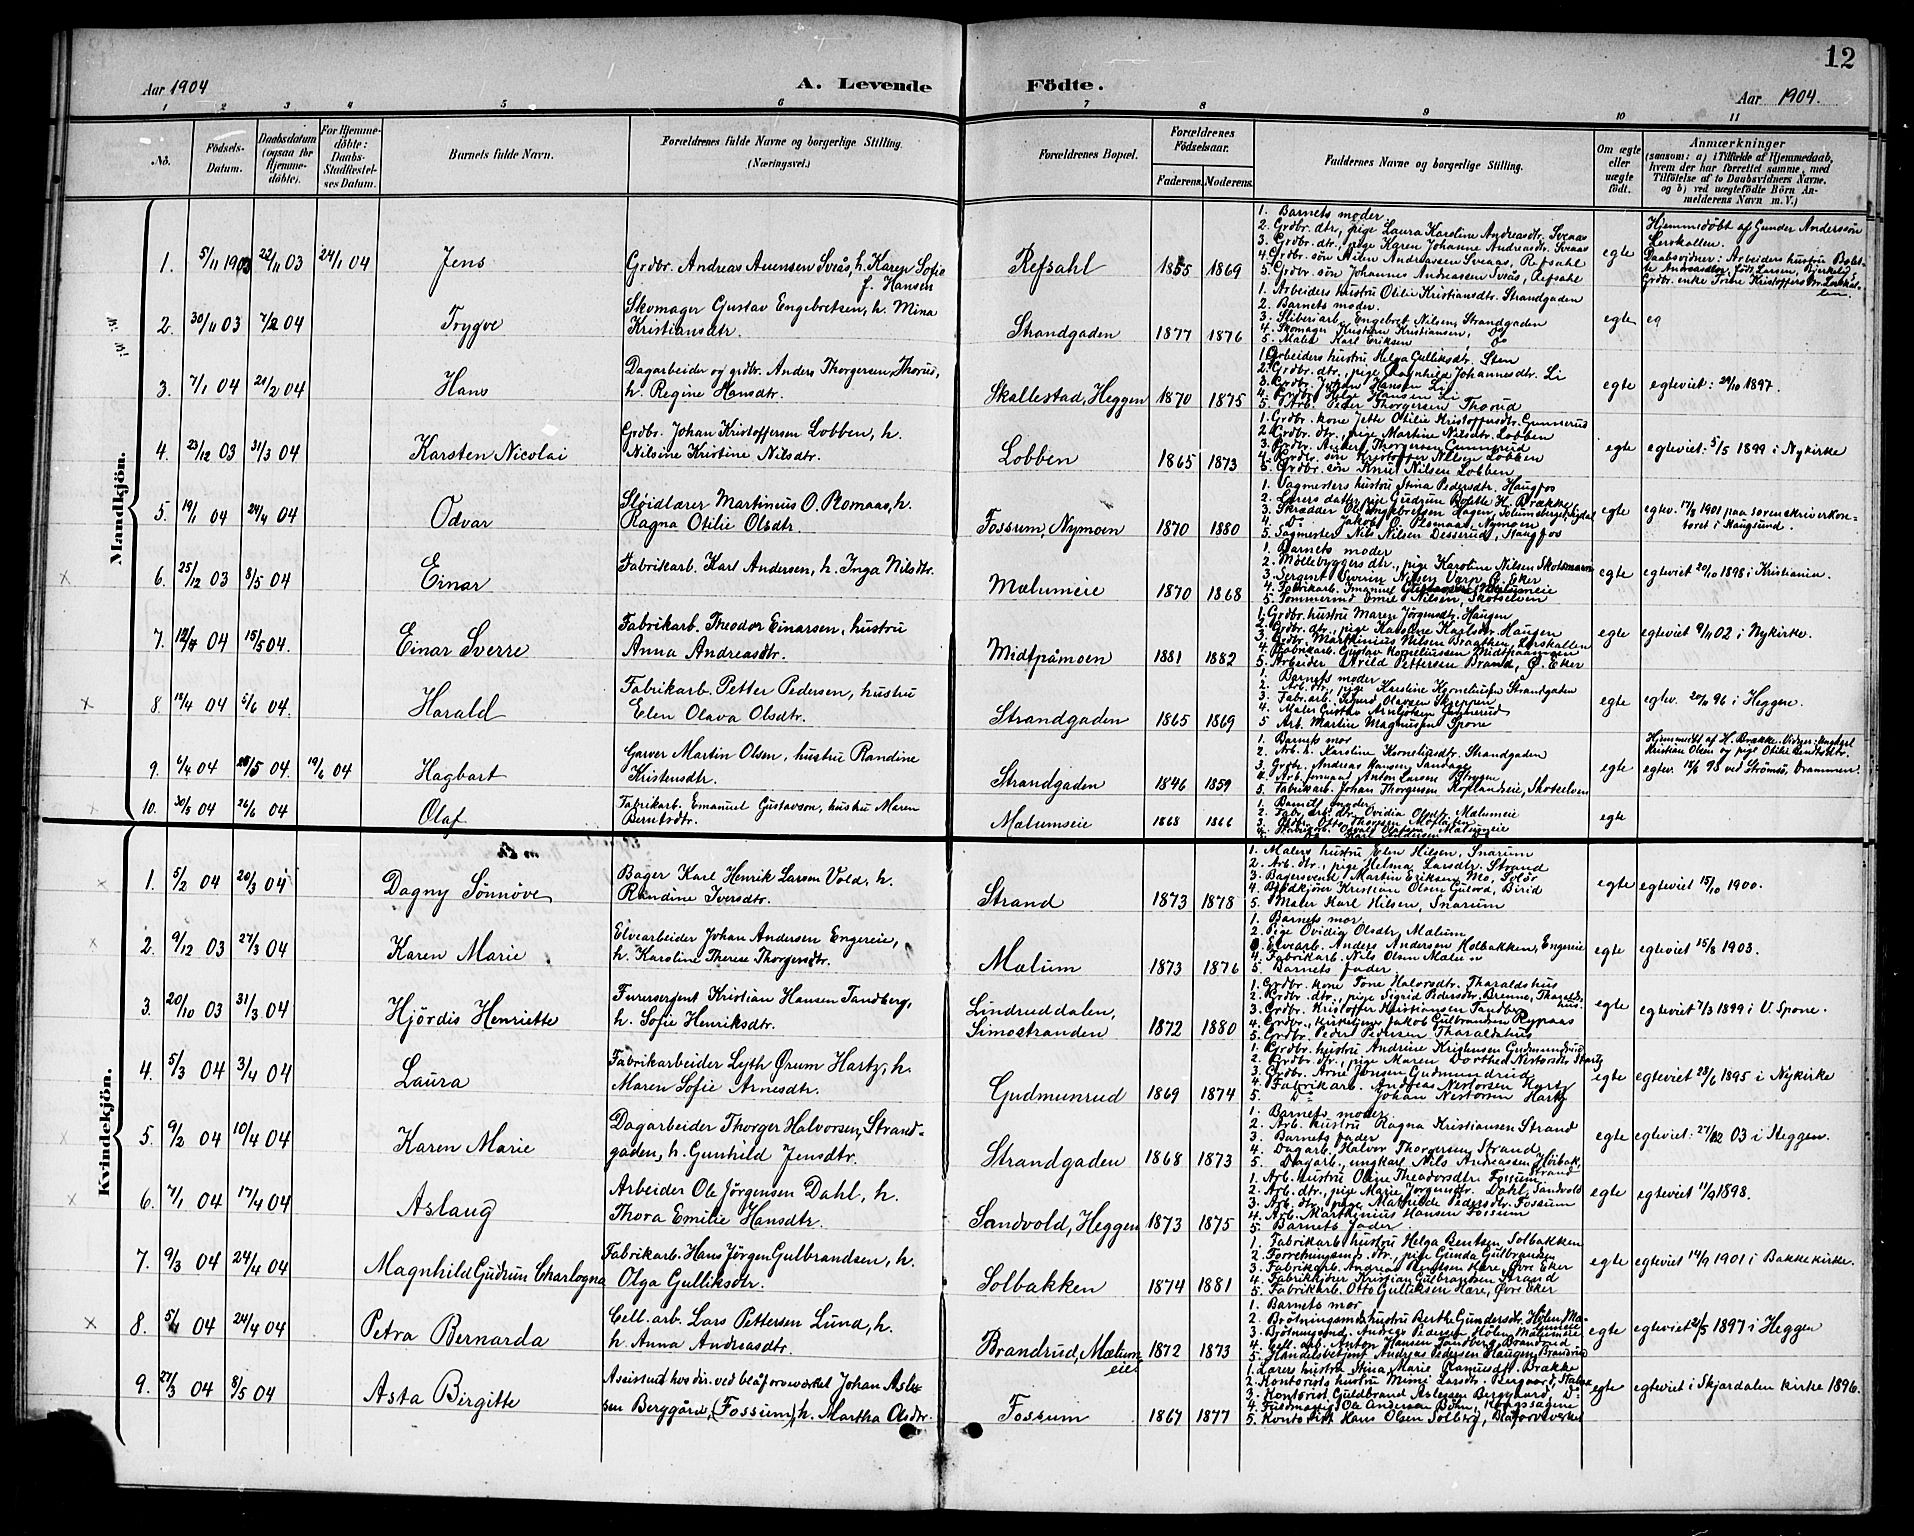 12
Aar 1904
A. Levende
Födte.
Aar 1904.
1 2 3 4 5 6 7 8 9 10 11
No.
Födsels-Datum.
Daabsdatum (ogsaa for Hjemmedöbte).
For Hjemmedöbte: Daabs-Stadfæstelses Datum.
Barnets fulde Navn.
Forældrenes fulde Navne og borgerlige Stilling. (Næringsvei.)
Forældrenes Bopæl.
Forældrenes Födselsaar.
Faderens. Moderens.
Faddernes Navne og borgerlige Stilling.
Om ægte eller uægte födt.
Anmærkninger
(saasom: a) i Tilfælde af Hjemmedaab,
hvem der har forrettet samme, med
Tilföielse af to Daabsvidners Navne,
og b) ved uægtefödte Börn An-
melderens Navn m. V.)
Mandkjön.
1. 5/11 1903 22/11 03 24/1 04 Jens
Grdbr. Andreas Auensen Sveås, h. Karen Sofie
f. Hansen
Refsahl 1855 1869
1. Barnets moder
2. Grdbr. dtr., pige Laura Karoline Andreasdtr. Sveaas
3. Grdbr. dtr., pige Karen Johanne Andreasdtr. Sveaas
4. Grdbr. sön Nilen Andreassen Sveaas, Refsahl
5. Grdbr. sön Johannes Andreassen Sveås, Refsahl
egte
Hjemmedöbt af Gunder Anderssön
Lerskallen.
Daabsvidner: Arbeiders hustru
2. 30/11 03 7/2 04 Trygve
Skomager Gustav Engebretsen, h. Mina
Kristiansdtr.
Strandgaden 1877 1876
1. Arbeiders hustru Otilie Kristiansdtr. Strandgaden
2. Barnets moder.
3. Sliberiarb. Engebret Nilsen, Strandgaden
4. Skomager Kristian Kristiansen, Do
5. Maler Karl Eriksen Do
egte eg
3. 7/1 04 21/2 04 Hans
Dagarbeider og grdbr. Anders Thorgersen, Thorud,
h. Regine Hansdtr.
Skallestad, Heggen 1870 1875
1. Arbeiders hustru Helga Gulliksdtr. Sten
2. Grdbr. dtr., pige Ragnhild Johannesdtr. Li
3. Grdbr. Johan Hansen Li
4. Grdbr. Helge Hansen Li
5. Arb. Peder Thorgersen Thorud
egte egteviet: 29/10 1897.
4. 23/12 03 31/3 04 Karsten Nicolai
Grdbr. Johan Kristoffersen Lobben, h.
Nilsine Kristine Nilsdtr.
Lobben 1865 1873
1. Grdbr. kone Jette Otilie Kristoffersdtr. Gunnerud
2. Grdbr. dtr., pige Martine Nilsdtr. Lobben
3. Grdbr. Anders Thorgersen Gunnerud
4. Grdbr. sön Kristoffer Nilsen Lobben
5. Grdbr. sön Knut Nilsen Lobben
egte egteviet: 5/5 1899 i Nykirke
5. 19/1 04 24/4 04 Odvar
Slöidlærer Martinius O. Romaas, h.
Ragna Otilie Olsdtr.
Fossum, Nymoen 1870 1880
1. Sagmesters hustru Stina Pedersdtr. Haugfos
2. Lærers datter, pige Gudrun Bolette H. Brække
3. Skrædder Ole Engebretsen Hagen
4. Do Jakob O. Romaas, Nymoen
5. Sagmester Nils Nilsen Desserud, Haugfos
egte egtev. 17/8 1901 paa sorenskriverkon-
toret i Haugsund.
x 6. 25/12 03 8/5 04 Einar
Fabrikarb. Karl Andersen, h. Inga Nilsdtr.
Mælumeie 1870 1868
1. Barnets moder
2. Möllebyggers dtr., pige Karoline Nilsen Skotsmoen
3. Sergent Sveren Nilsen Varp Ö. Eker
4. Fabrikarb. Emanuel Gustavsen Mælumeie
5. Tömmermd. Emil Nilsen, Skotselven
egte egteviet 20/10 1898 i Kristiania.
7. 12/4 04 15/5 04. Einar Sverre
Fabrikarb. Theodor Einarsen, hustru
Anna Andreasdtr.
Midtpåmoen 1881 1882
1. Grdbr. hustru Maren Jörgensdtr. Haugen
2. Grdbr. dtr., pige Karoline Karlsdtr. Haugen
3. Grdbr. Marthinius Nilsen Braathen, Lerskallen
4. Fabrikarb. Gustav Korneliussen Midtpaamoen
5. Arbeider Arild Pettersen Brand, Ö. Eker
egte egteviet 9/11 02 i Nykirke.
x 8. 18/4 04 5/6 04. Harald
Fabrikarb. Petter Pedersen, hustru
Elen Olava Olsdtr.
Strandgaden 1865 1869
1. Barnets moder
2. Arb. dtr., pige Karoline Korneliusen Strandgaden
3. Fab. arb. Sigurd Olavsen Skreppen
5 Arb. Martin Magnusen Spone
egte egtev. 20/11 96 i Heggen.
9. 6/4 04 28/5 04. 19/6 04 Hagbart
Garver Martin Olsen, hustru Randine
Kristensdtr.
Strandgaden 1846 1859
1. Barnets mor
2. Arb. h. Karoline Korneliusdtr. Strandgaden
3. Grdbr. Andreas Hansen Sandage
5. Fabrikarb. Johan Thorgersen Koplandeie, Skotselven
egte
Hjemmedt af H. Brække.
Kristian Olsen og pige Otilie
egtev. 18/6 98 ved Strömsö, Drammen.
x 10. 30/3 04 26/6 04 Olaf
Fabrikarb. Emanuel Gustavson, hustru Maren
Berntsdtr.
Mælumseie 1868 1866
1. Barnets moder
2. Fabr. arb. dtr. Ovidia Olsdtr. Mælumeie
egte
Kvindekjön.
1. 5/2 04 20/3 04 Dagny Sönnöve
Bager Karl Henrik Larsen Vold, h.
Randine Iversdtr.
Strand 1873 1878
1. Malers hustru Elen Hilsen, Snarum
2. Arb. dtr., pige Helma Larsdtr. Strand
3. Bagersvend Martin Eriksen Mo, Solör
4. Brödkjörer Kristian Olsen Gulord, Birid
5. Maler Karl Hilsen, Snarum
egte egteviet 15/10 1900.
x 2. 9/12 03 27/3 04 Karen Marie
Elvearbeider Johan Andersen Engereie,
h. Karoline Therese Thorgersdtr.
Mælum 1873 1876
1. Barnets mor
2. Pige Ovidia Olsdtr, Mælum
3. Elvearb. Anders Andersen Holbakken, Engereie
4. Fabrikarb. Nils Olsen Mælum
5. Barnets fader
egte egteviet 15/8 1903.
3. 20/10 03 31/3 04 Hjördis Henriette
Furersergent Kristian Hansen Tandberg,
h. Sofie Henriksdtr.
Lindruddalen,
Simostranden 1872 1880
1. Grdbr. kone Tone Halvorsdtr. Tharaldshus
2. Grdbr. dtr., pige Sigrid Pedersdtr. Brenne, Tharalds-
hus
3. Grdbr. Kristoffer Kristiansen Tandberg
4. Grdbr., kirketjener Jakob Gulbrandsen Rypaas
5. Grdbr. Peder Pedersen Tharaldshus
egte egteviet 7/3 1899 i V. Spone.
4. 5/3 04 3/4 04 Laura
Fabrikarbeider Lyth Ørum Hartz, h.
Maren Sofie Arnesdtr.
Gudmunrud 1869 1874
1. Grdbr. hustru Andrine Kristensen Gudmundrud
2. Grdbr. dtr., pige Maren Dorthea Nestorsdtr. Hartz
3. Grdbr. Arne Jensen Gudmundrud
4. Fabrikarb. Andreas Nestorsen Hartz
5. Do Johan Nestorsen Hartz
egte egteviet 28/6 1895 i Nykirke
x 5. 9/2 04 10/4 04 Karen Marie
Dagarbeider Thorger Halvorsen, Strand-
gaden, h. Gunhild Jensdtr.
Strandgaden 1868 1873
1. Barnets moder
2. Arb. hustru Ragna Kristiansen Strand
3. Barnets fader
4. Dagarb. Halvor Thorgersen, Strand
5. Dagarb., ungkarl Nils Andreassen Höibak,
Strand
egte egteviet: 27/12 03 i Heggen.
x 6. 7/1 04 17/4 04 Aslaug
Arbeider Ole Jörgensen Dahl, h.
Thora Emilie Hansdtr.
Sandvold, Heggen 1873 1875
1. Arb. hustru Oline Theodorsdtr. Fossum
2. Arb. dtr., pige Marie Jörgensdtr. Dahl, Sandvold
3. Arb. dtr., pige Mathilde Pedersdtr. Fossum
4. Arb. Marthinius Hansen Fossum
5. Barnets fader.
egte egteviet 11/9 1898.
7. 9/3 04 24/4 04 Magnhild Gudrun Charlogna
Fabrikarb. Hans Jörgen Gulbrandsen, h.
Olga Gulliksdtr.
Solbakken 1874 1881
1. Fabrikarb. hustru Helga Bentsen Solbakken
2. Forretningsmds. dtr., pige Gunda Gulbrandsen
3. Fabrikarb. Andreas Bentsen Hære, Övre Eker
4. Fabrikkjörer Kristian Gulbrandsen Strand
5. Fabrikarb. Otto Gulliksen Hære, Övre Eker
egte egteviet 14/9 1901 i Bakke kirke.
x 8. 5/4 04 24/4 04 Petra Bernarda
Cell. arb. Lars Pettersen Lund, h.
h Anna Andreasdtr.
Brandrud, Mælum
eie 1872 1873
1. Barnets mor
2. Brötningsmds. hustru Berthe Gundersdtr. Holen, Mæ-
lumeie
3. Brötningsmd. Andreas Pedersen Holen, Mælumeie
4. Cell. arb. Anton Hansen Tandberg, Brandrud
5. Handelsbetjent Andreas Pedersen Haugen, Brandrud
egte egteviet 2/5 1897 i Heggen
9. 27/3 04 8/5 04 Asta Birgitte
Assistent hos dir. ved blåfarveværket Johan Asle-
sen Berggård, (Fossum), h. Martha Olsdtr.
Fossum 1867 1877
1. Lærers hustru Stina Marie Ramusdtr. Brække
2. Kontorists hustru Mimi Larsdtr. Bergaard,
3. Kontorist Guldbrand Aslesen Berggaard, Do
4. Fuldmægtig Ole Andersen Böhn, Kongssagene
5. Kontorist Hans Olsen Solberg, Blåfarveværket
egte egteviet i Skjordalen kirke 1896.